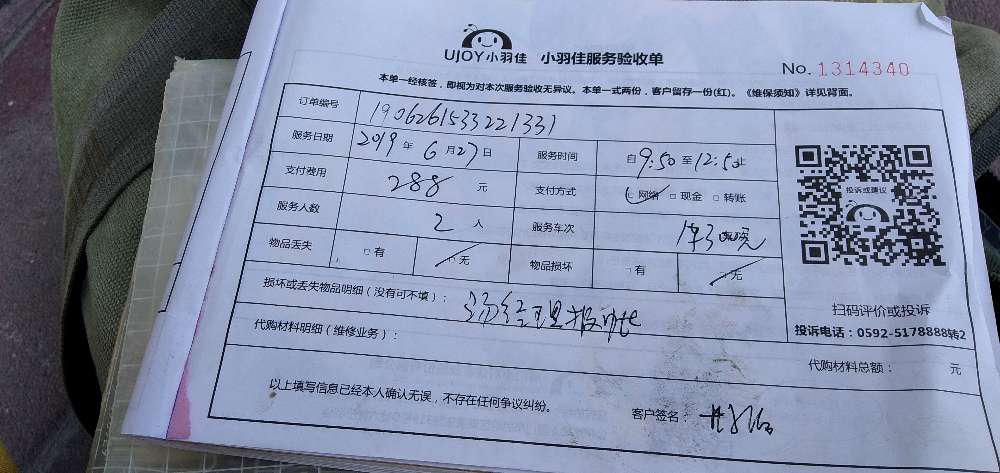 UJOY小羽佳 小羽佳服务验收单
No. 1314340
本单一经核签，即视为对本次服务验收无异议。本单一式两份，客户留存一份(红)。《维保须知》详见背面。
订单编号 1906261533221331
服务日期 2019 年 6 月 27 日 服务时间 自 9:50 至 12:50 止
支付费用 288 元 支付方式 网络 □ 现金 □ 转账
服务人数 2 人 服务车次
物品丢失 □ 有 □ 无 物品损坏 □ 有 □ 无
损坏或丢失物品明细（没有可不填）： 经理报
代购材料明细（维修业务）：
代购材料总额： 元
以上填写信息已经本人确认无误，不存在任何争议纠纷。
客户签名：
投诉或建议
扫码评价或投诉
投诉电话：0592-5178888转2